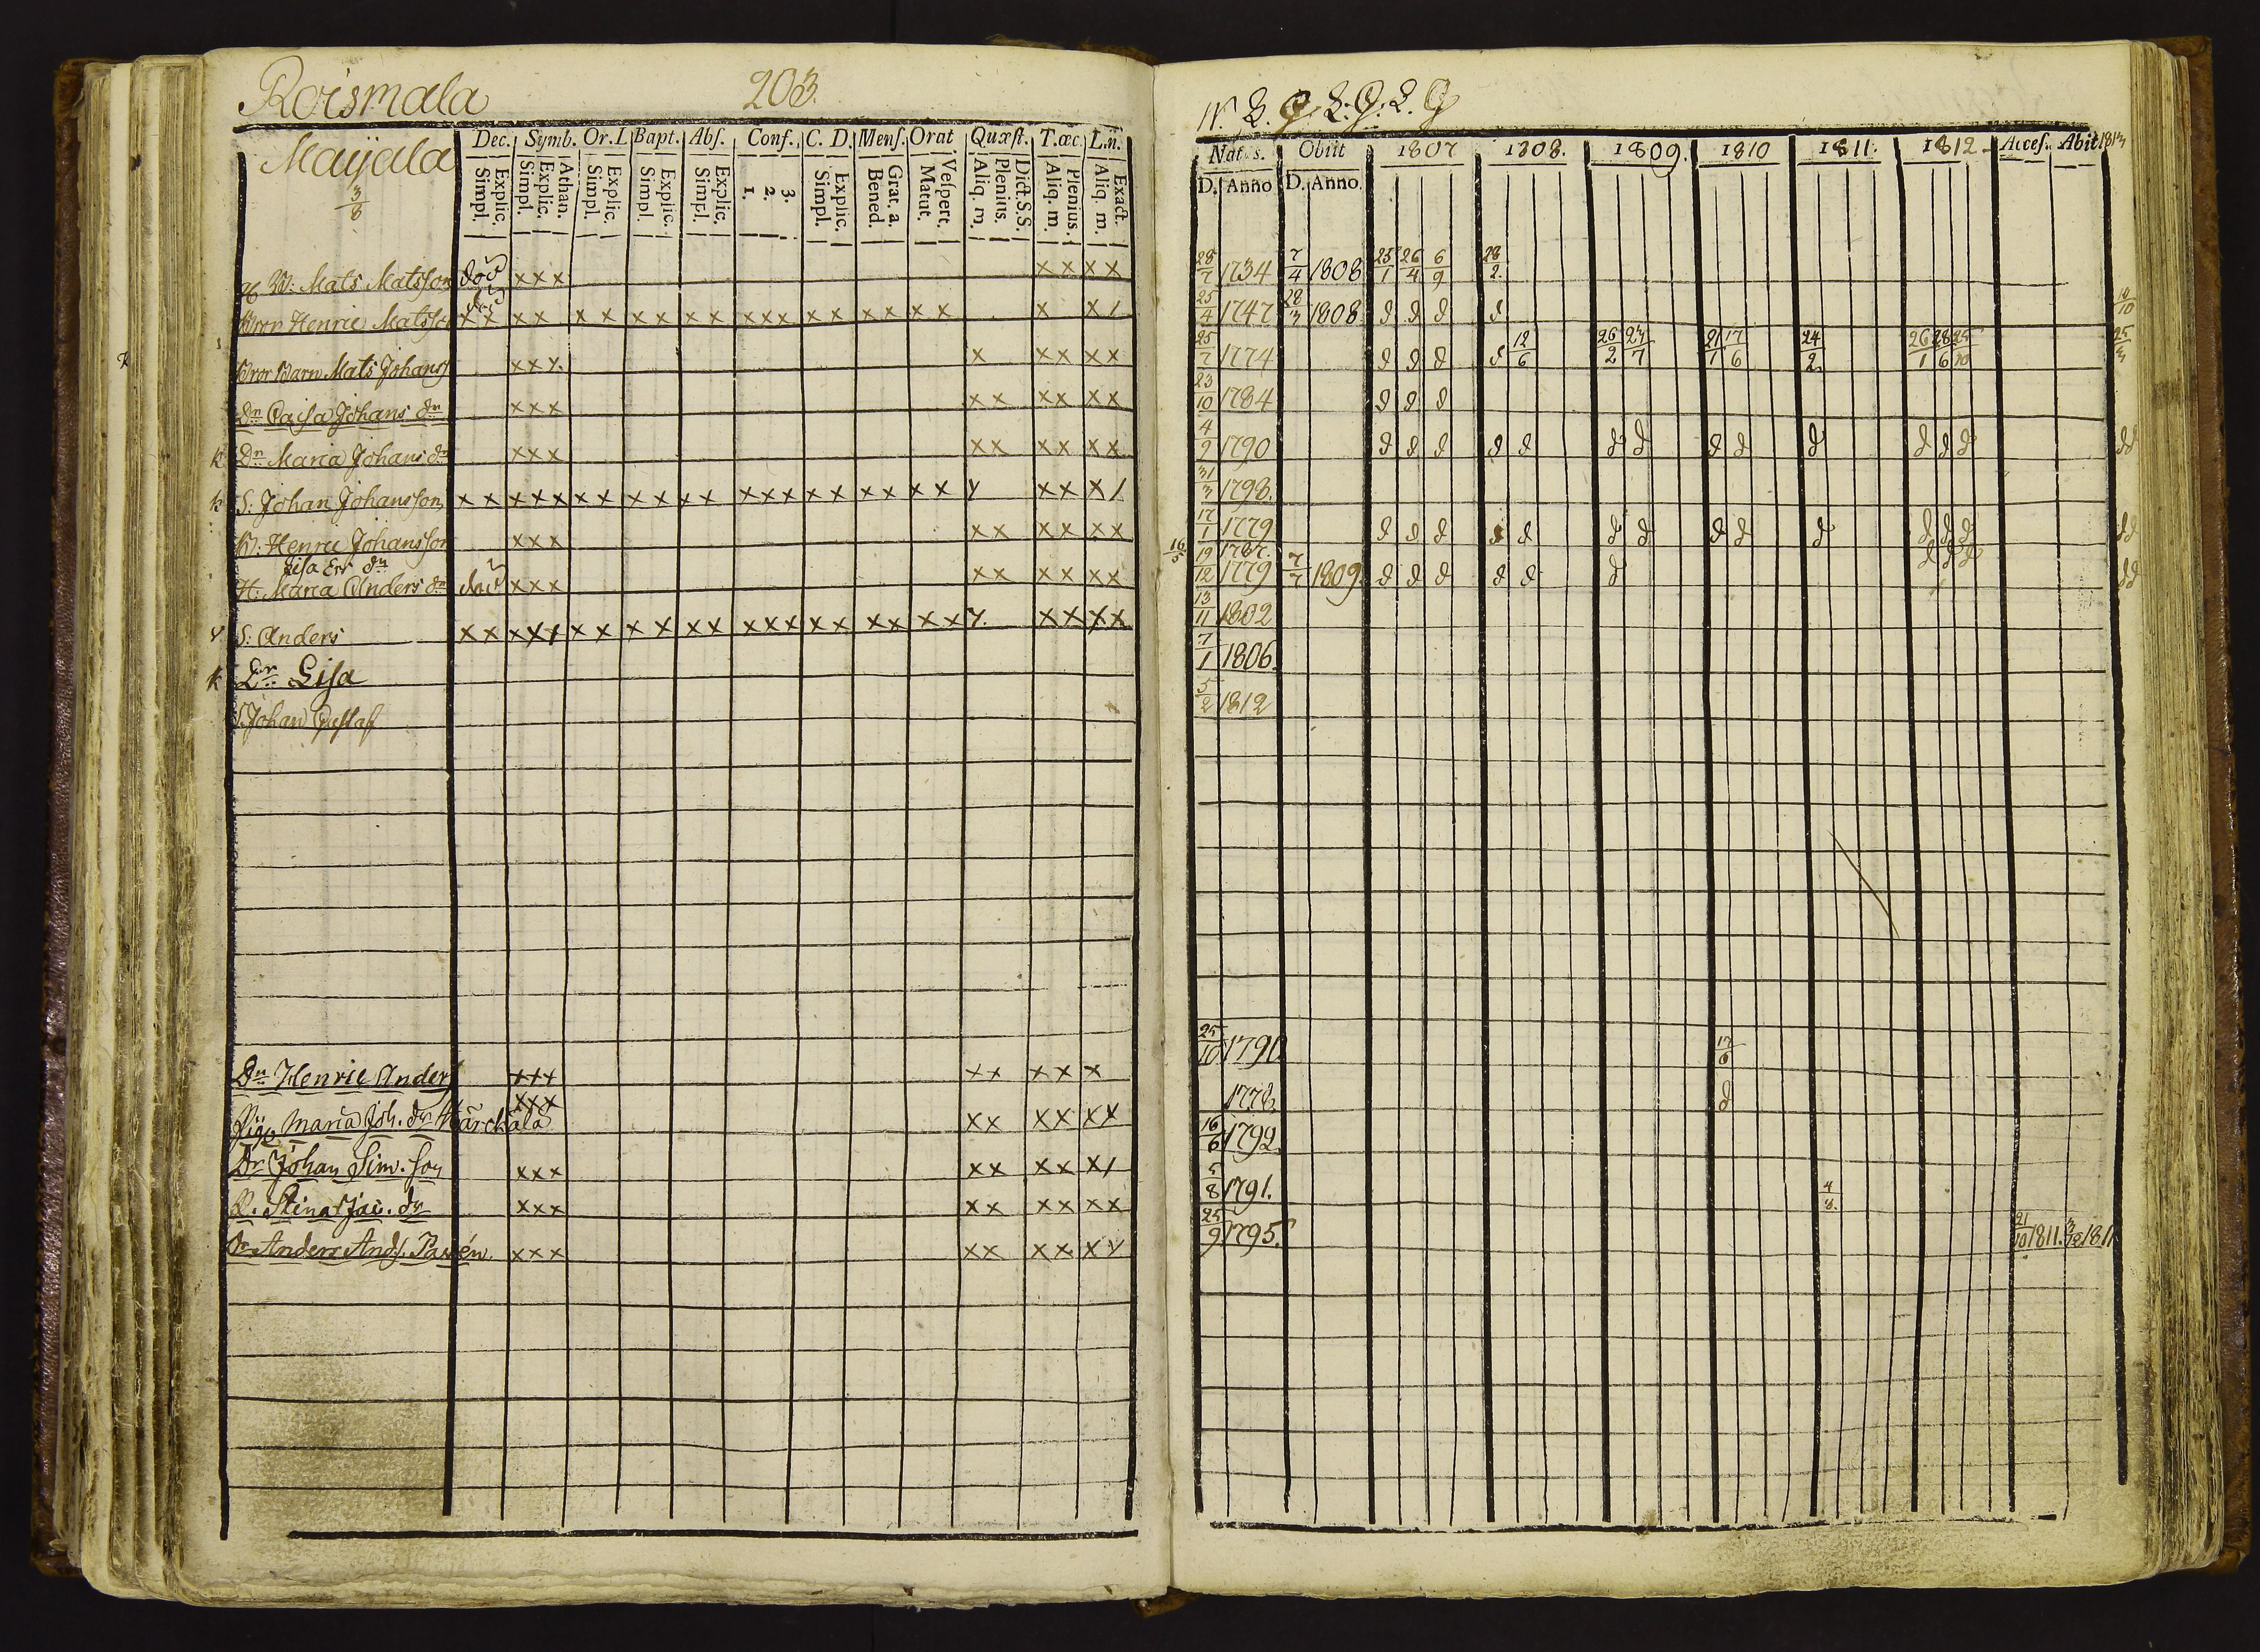 Roismala 203.
Maijala
3/8
Dec. Symb. Or. L Bapt. Abs. Conf. C. D. Mens. Orat Quæst. T.æc. L.n.
Explic. Simpl. Athan. Explic. Simpl. Explic. Simpl. Explic. Simpl. Explic. Simpl. 3. 2. 1. Explic. Simpl. Grat. a. Bened. Vespert. Matut. Dict. S.S. Plenius. Aliq. m. Plenius. Aliq. m Exact. Aliq. m.
W: Mats Matsson död xxx xx xx
Bror Henric Matsson xx xx xx xx xx xxx xx xx xx x x/
Bror Barn Mats Johanss xxx x xx xx
Dr Caisa Johans dr xxx xx xx xx
k Dr Maria Johans dr xxx xx xx xx
k S: Johan Johansson xx xxx xx xx xx xxx xx xx xx xx x/
B: Henric Johansson xxx xx xx xx
Lisa Er: dr
H: Maria Anders dr död xxx xx xx xx
S: Anders xx xxx xx xx xx xxx xx xx xx xx xx
k Dr Lisa
S. Johan Gustaf
Dr Henric Anders xxx xx xx x
Pig. Maria Joh. dr Härckälä xxx xx xx xx
Dr Johan Sim. son xxx xx xx x/
P. Stina Jac. dr xxx xx xx xx
Dr Anders And.s. xxx xx xx
Nat s. Obiit 1807 1808. 1809. 1810 1811. 1812 Acces. Abit 1813
D. Anno D. Anno.
28/7 1734 7/4 1808 25/1 26/4 6/9 28/2.
25/4 1747 28/3 1808 d d d d
25/7 1774 d d d d 12/6 26/2 23/7 21/1 17/6 24/2 26/1 28/6 25/10 25/3
23/10 1784 d d d
4/9 1790 d d d d d d d d d d d d d dd
31/3 1798.
17/1 1779 d d d d d d d d d d d d d dd
16/5 19/12 1787. 1779 7/7 1809. d d d d d d d d d dd
13/11 1802
7/1 1806.
5/2 1812
25/10 1790 17/6
1778 d
16/6 1792.
5/8 1791. 4/8.
25/9 1795. 21/10 1811. 3/12 1811